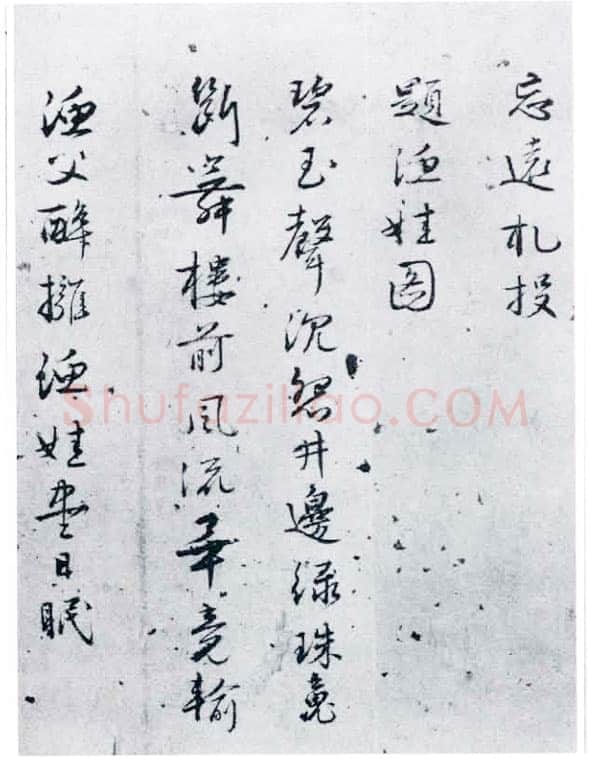 忘遠札投
題漁娃图
碧玉聲沉眢井邊綠珠魂
斷舞樓前風流畢竟輸
漁父醉擁漁娃盡日眠
Shufaziliao.COM